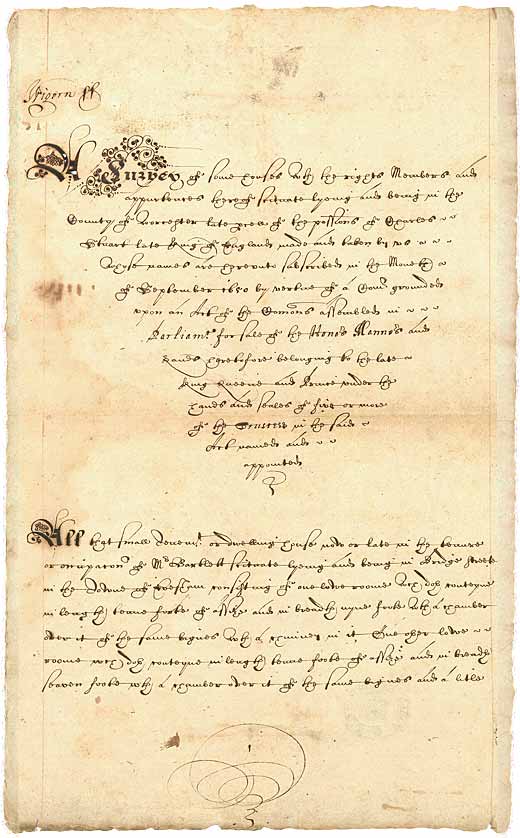 Wigorn ss
A Survey of some houses with the rights Members and
appurtences thereof scituate lyeing and being in the
County of Worcester late peell of the possions of Charles
Stuart late King of England made and taken by us
whose names are hereunto subscribed in the Moneth
of September 1650 by vertue of a Comn grounded
upon an Act of the Comons assembled in
Parliamt for sale of the Honors Mannors and
Lands heretofore belonging to the late
King Queene and Prince under the
hands and seales of five or more
of the Trustees in the said
Act named and
appointed
All that small Tenemt or dwelling house now or late in the tenure
or occupacon of Mr Bartlett scituate lyeing and being in Bridge streete
in the Towne of Evesham consisting of one lowe roome wch doth conteyne
in length tenne foote of assize and in breadth nyne foote with a chamber
over it of the same bignes with a chimney in it, One other lowe
roome wch doth conteyne in length tenne foote of assize and in breadth
seaven foote with a chamber over it of the same bignes and a litle
1